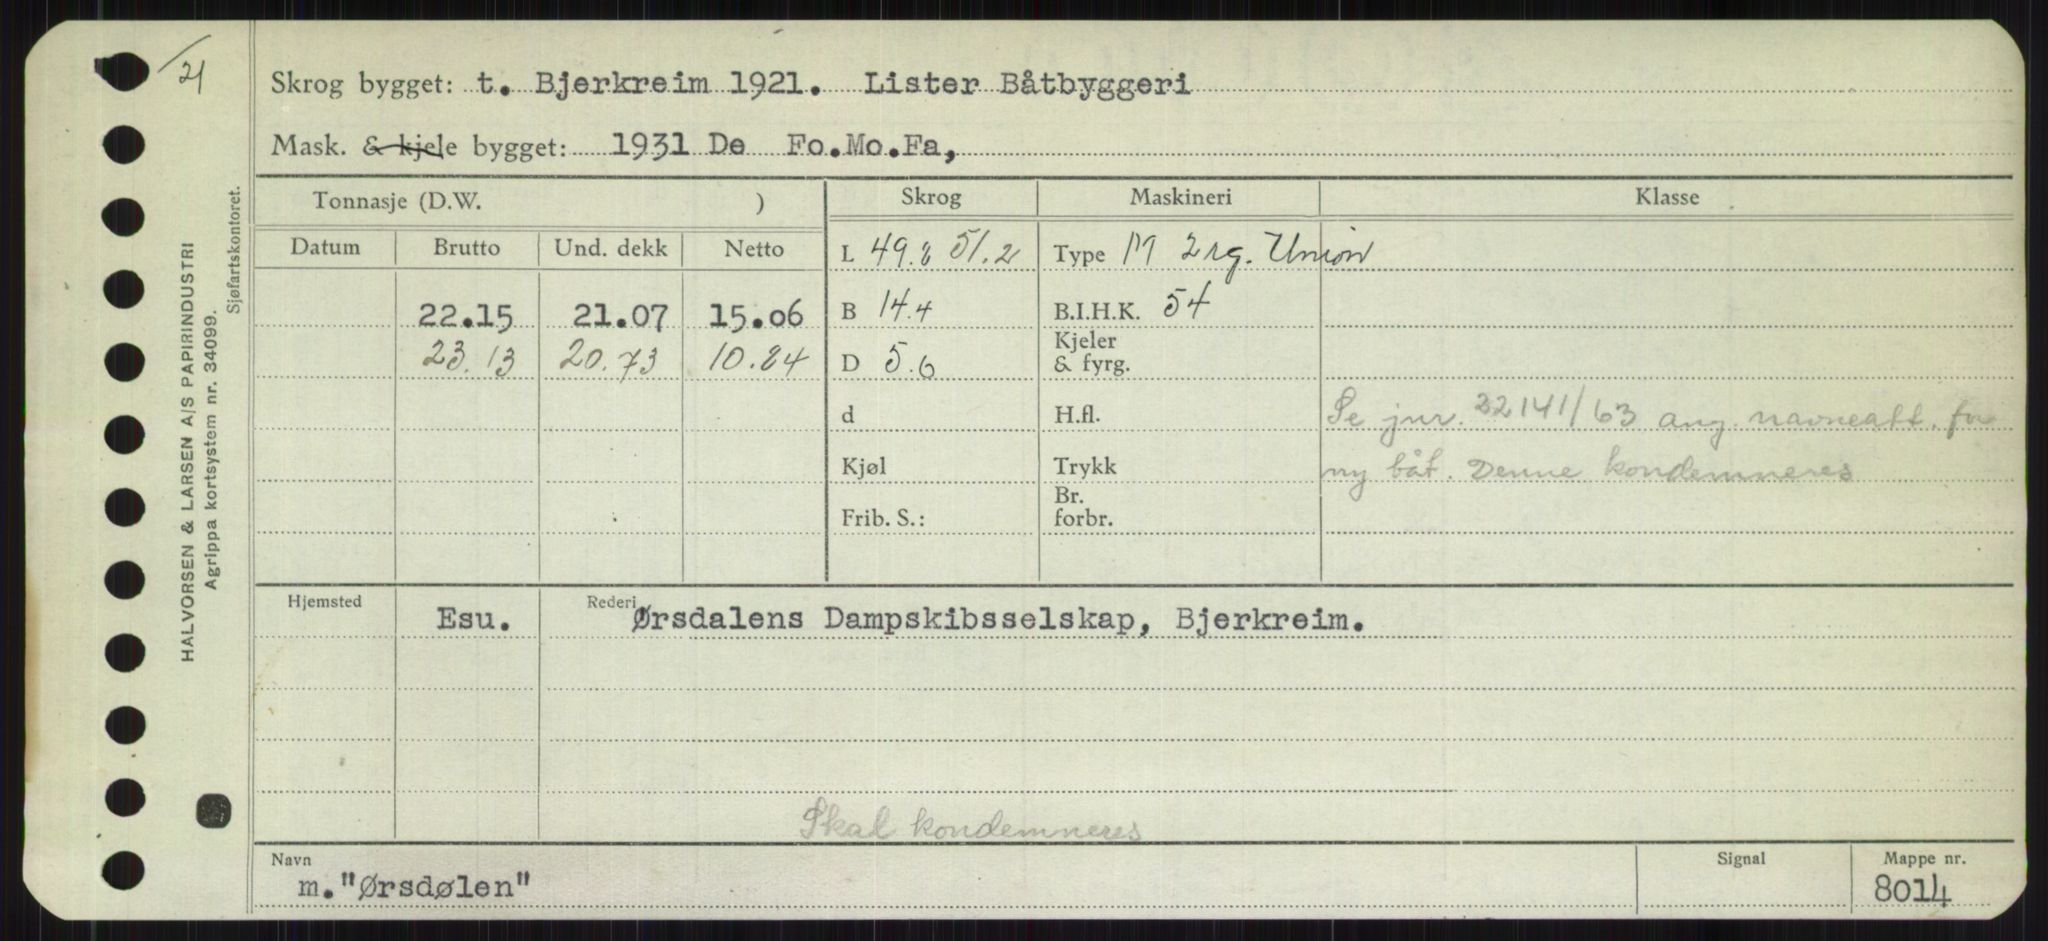 21
Skrog bygget: t. Bjerkreim 1921. Lister Båtbyggeri
Mask. & kjele bygget: 1931 De Fo.Mo.Fa,
Tonnasje (D.W. ) Skrog Maskineri Klasse
Datum Brutto Und. dekk Netto
L 49.8 51.2 Type M 2 sg. Union
22.15 21.07 15.06 B 14.4 B.I.H.K. 54
23.13 20.73 10.84 D 5.6 Kjeler & fyrg.
d H.fl. Se jnr. 22141/63 ang. navneatt. for
Kjøl Trykk ny båt. Denne kondemneres
Frib. S.: Br. forbr.
Hjemsted Esu. Rederi Ørsdalens Dampskibsselskap, Bjerkreim.
Skal kondemneres
Navn Signal Mappe nr.
m."Ørsdølen" 8014
HALVORSEN & LARSEN A/S PAPIRINDUSTRI
Agrippa kortsystem nr. 34099.
Sjøfartskontoret.